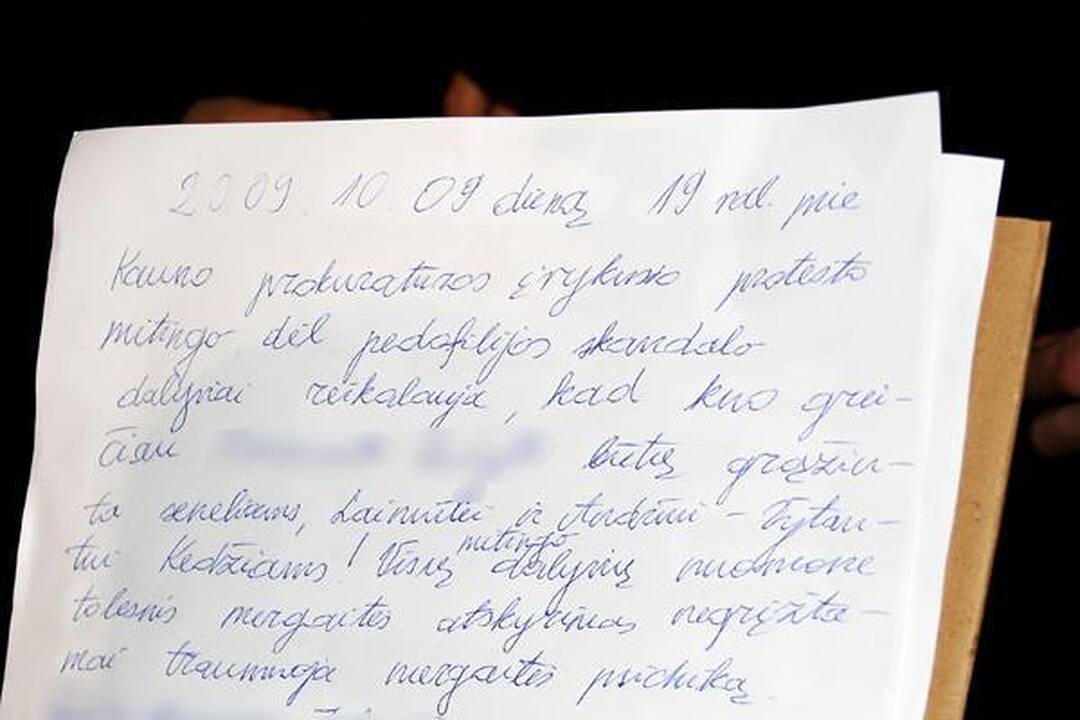 2009 10 09 dieną 19 val. prie
Kauno prokuratūros įvykusio protesto
mitingo dėl pedofilijos skandalo
dalyviai reikalauja, kad kuo grei-
čiau būtų grąžin-
ta seneliams, Laimutei ir Andriui - Vytau-
tui Kedžiams! Visų mitingo dalyvių nuomone
tolesnis mergaitės atskyrimas negrįžta-
mai traumuoja mergaitės psichiką.